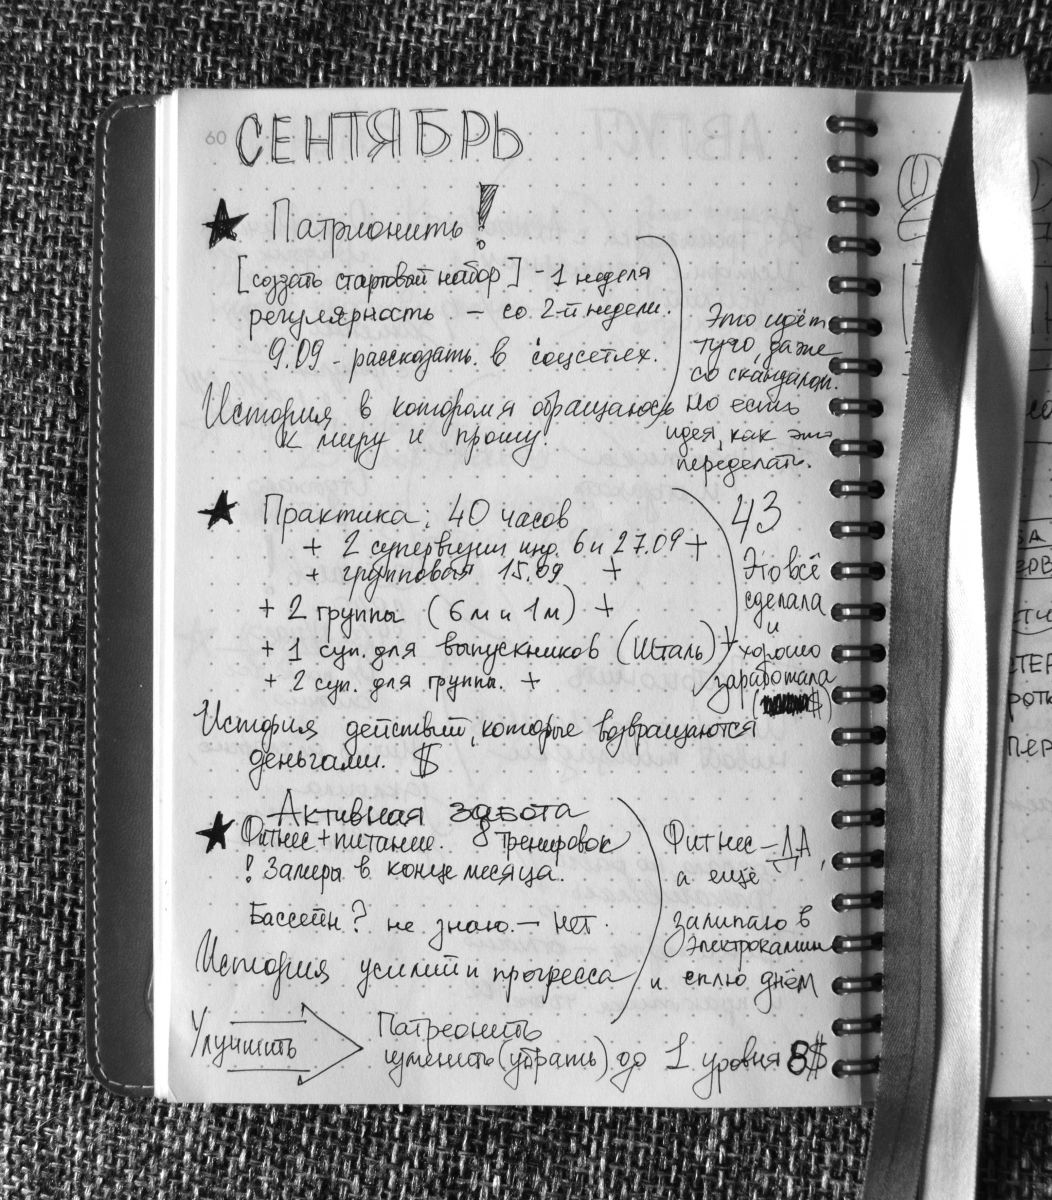 60
СЕНТЯБРЬ
★ Патрионить!
[создать стартовый набор] - 1 неделя
регулярность – со 2-й недели.
9.09 - рассказать в соцсетях.
История в котором я обращаюсь
к миру и прошу.
Это идёт
туго, даже
со скандалом.
Но есть
идея, как это
переделать.
★ Практика: 40 часов
+ 2 супервизии инд. 6 и 27.09 +
+ групповая 15.09 +
+ 2 группы (6 м и 1 м) +
+ 1 суп. для выпускников (Шталь) +
+ 2 суп. для группы. +
История действий, которые возвращаются
деньгами. $
43
Это всё
сделала
и
хорошо
заработала
( $)
Активная забота
★ Фитнес + питание. 8 тренировок
! Замеры в конце месяца.
Бассейн? не знаю. – Нет.
История усилий и прогресса
Фитнес – ДА,
а ещё
залипаю в
Электрокамин
и сплю днём
Улучшить
Патреонить
уменьшить (убрать) до 1 уровня 8$